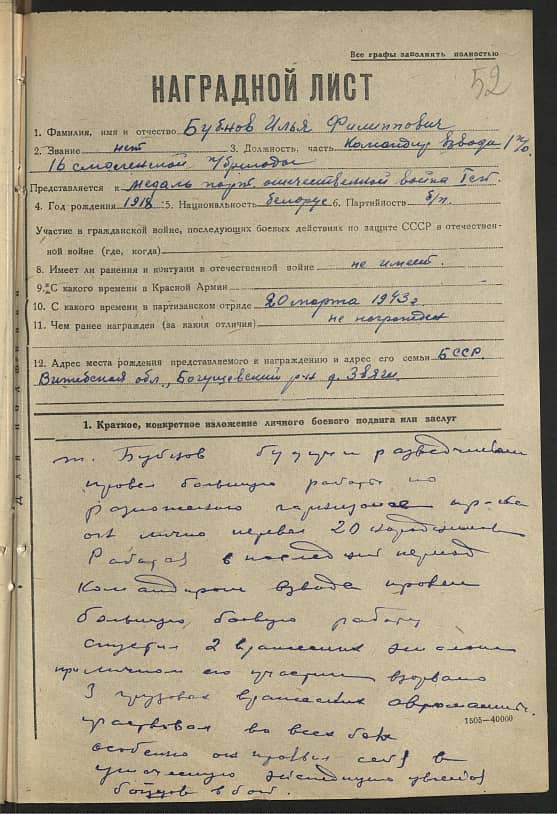 Все графы заполнять полностью
52
НАГРАДНОЙ ЛИСТ
1. Фамилия, имя и отчество Бубнов Илья Филиппович
2. Звание нет 3. Должность, часть Командир взвода 1 п/о.
16 смоленской п/бригады
Представляется к медаль парт. отечественной война I ст.
4. Год рождения 1918 5. Национальность белорус 6. Партийность б/п.
Участие в гражданской войне, последующих боевых действиях по защите СССР в отечествен-
ной войне (где, когда)
8. Имеет ли ранения и контузии в отечественной войне не имеет.
9. С какого времени в Красной Армии
10. С какого времени в партизанском отряде 20 марта 1943 г
11. Чем ранее награжден (за какия отличия) не награжден
12. Адрес места рождения представляемого к награждению и адрес его семьи БССР.
Витебская обл., Богушевский р-н д. Звяги
1. Краткое, конкретное изложение личного боевого подвига или заслуг
т. Бубнов будучи разведчиком
провел большую работу по
разложению гарнизонов пр-ка
он лично перевел 20
Работая в последний период
Командиром взвода провел
большую боевую работу
спустил 2 вражеских эшелона
при личном его участии взорвано
3 грузовых вражеских автомашин.
участвовал во всех боях
особенно он проявил себя в
экспедицию
бойцов в бой.
1505—40000